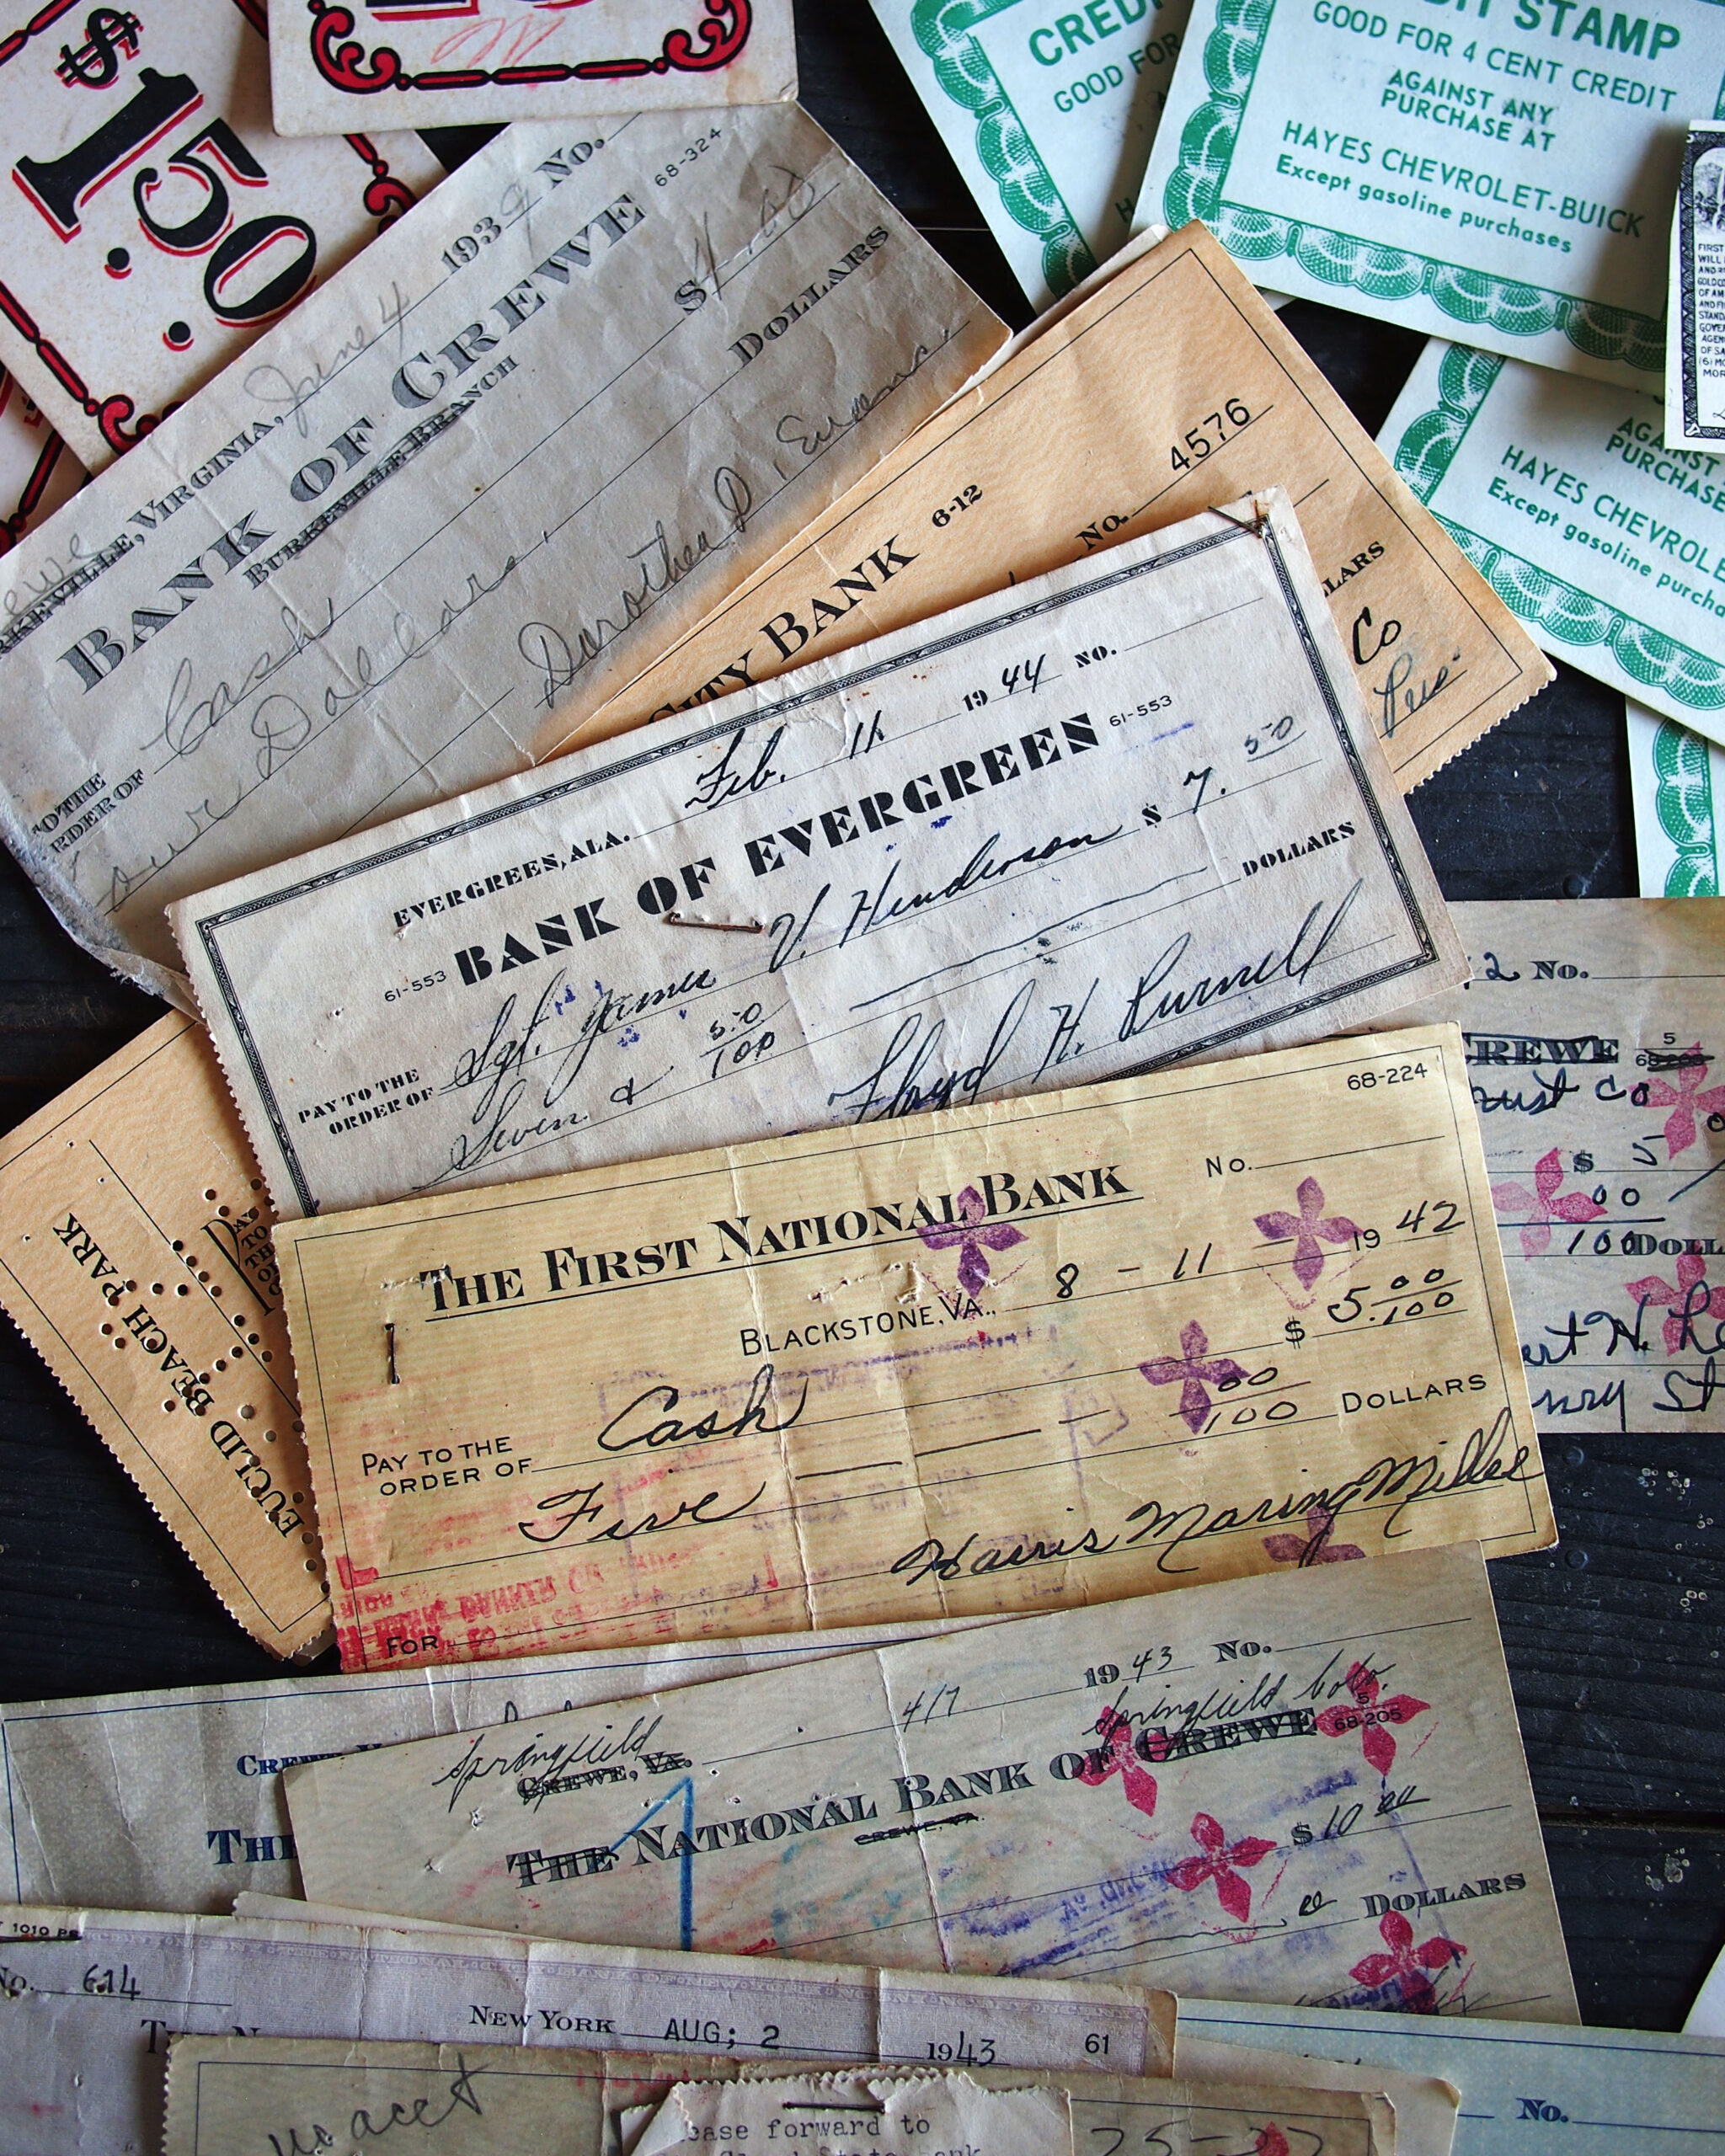 $1.50.
CREDIT STAMP
GOOD FOR 4 CENT CREDIT
AGAINST ANY
PURCHASE AT
HAYES CHEVROLET-BUICK
Except gasoline purchases
CREDI
GOOD FOR
H
FIRST
WILL
AGAINST
PURCHASE
HAYES CHEVROLE
Except gasoline purcha
RKEVILLE, VIRGINIA, June 4 1939 No.
68-324
BANK OF CREWE
BURKEVILLE BRANCH
$4.00
TO THE
RDER OF Cash
our Dollars, DOLLARS
Dorothea D. Evans.
CITY BANK 6-12
No. 4576
LLARS
Co
Pres.
EVERGREEN, ALA. Feb. 11 1944 NO.
61-553 BANK OF EVERGREEN 61-553
PAY TO THE
ORDER OF Sgt. James V. Henderson $7.50
Seven & 50/100 DOLLARS
Floyd H. Purnell
2 No.
CREWE 5
68-205
rust Co
$5 00/100 DOLL
ert H.
nry St
PAY
TO
THE
EUCLID BEACH PARK
68-224
THE FIRST NATIONAL BANK No.
BLACKSTONE, VA., 8-11 1942
$5.00/100
PAY TO THE
ORDER OF Cash
Five 00/100 DOLLARS
Harris Maring Miller
FOR
CREWE
THE
Springfield 4/7 1943 No.
CREWE, VA.
Springfield
THE NATIONAL BANK OF CREWE 5
68-205
CREWE, VA.
$10 00
00 DOLLARS
1
1010
No. 614
NEW YORK AUG; 2 1943 61
acct
ease forward to
State
No.